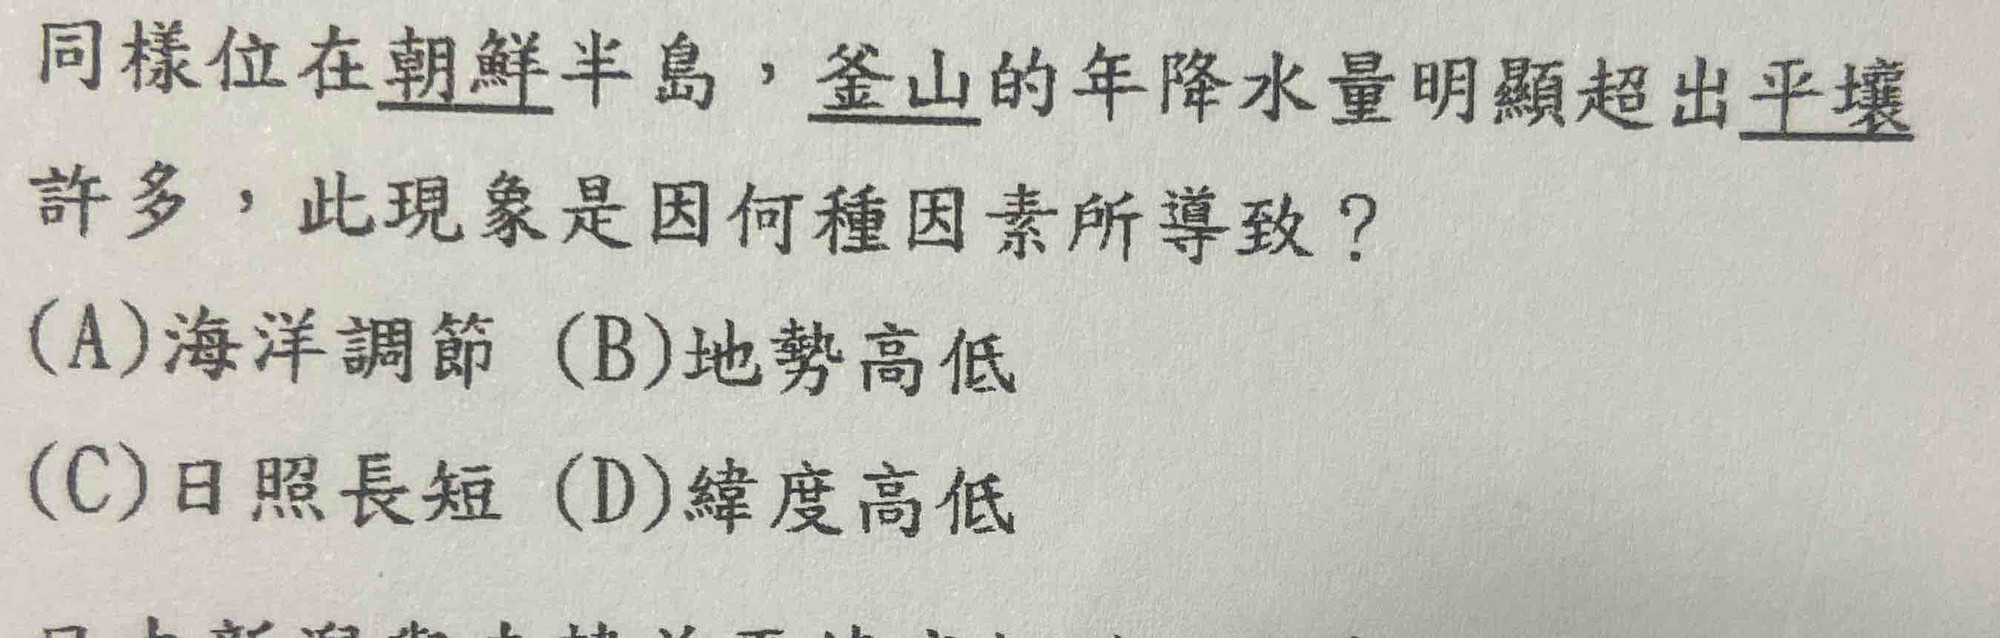 同樣位在朝鮮半島，釜山的年降水量明顯超出平壤
許多，此現象是因何種因素所導致？
(A)海洋調節 (B)地勢高低
(C)日照長短 (D)緯度高低